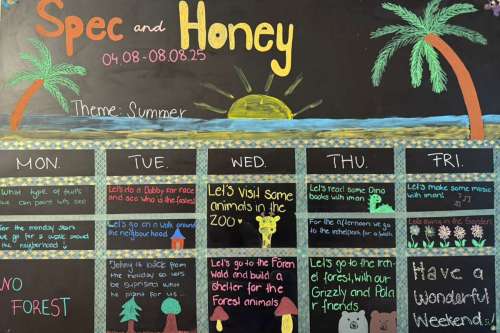 Spec and Honey
04.08-08.08.25
Theme: Summer
MON.
TUE.
WED.
THU.
FRI.
What type of fruits
we can paint lets see
Let's do a Bobby car race
and see who is the fastest
Let's Visit some
animals in the
ZOO
Let's read some Dino
books with iman!
Let's make some music
with iman!
For the monday start
we go for a walk around
the neighborhood ↓
Let's go on a walk around
the neighbourhood.
For the afternoon we go
to the infielpark for a walk
in the Garden
NO
FOREST
Johny is back from
the monday so lets
be suprised what
he plant for us...
Let's go to the Foren
wald and build a
shelter for the
Forest animals
Let's go to the
el forest, with our
Grizzly and Pola
r friends
Have a
Wonderful
Weekend